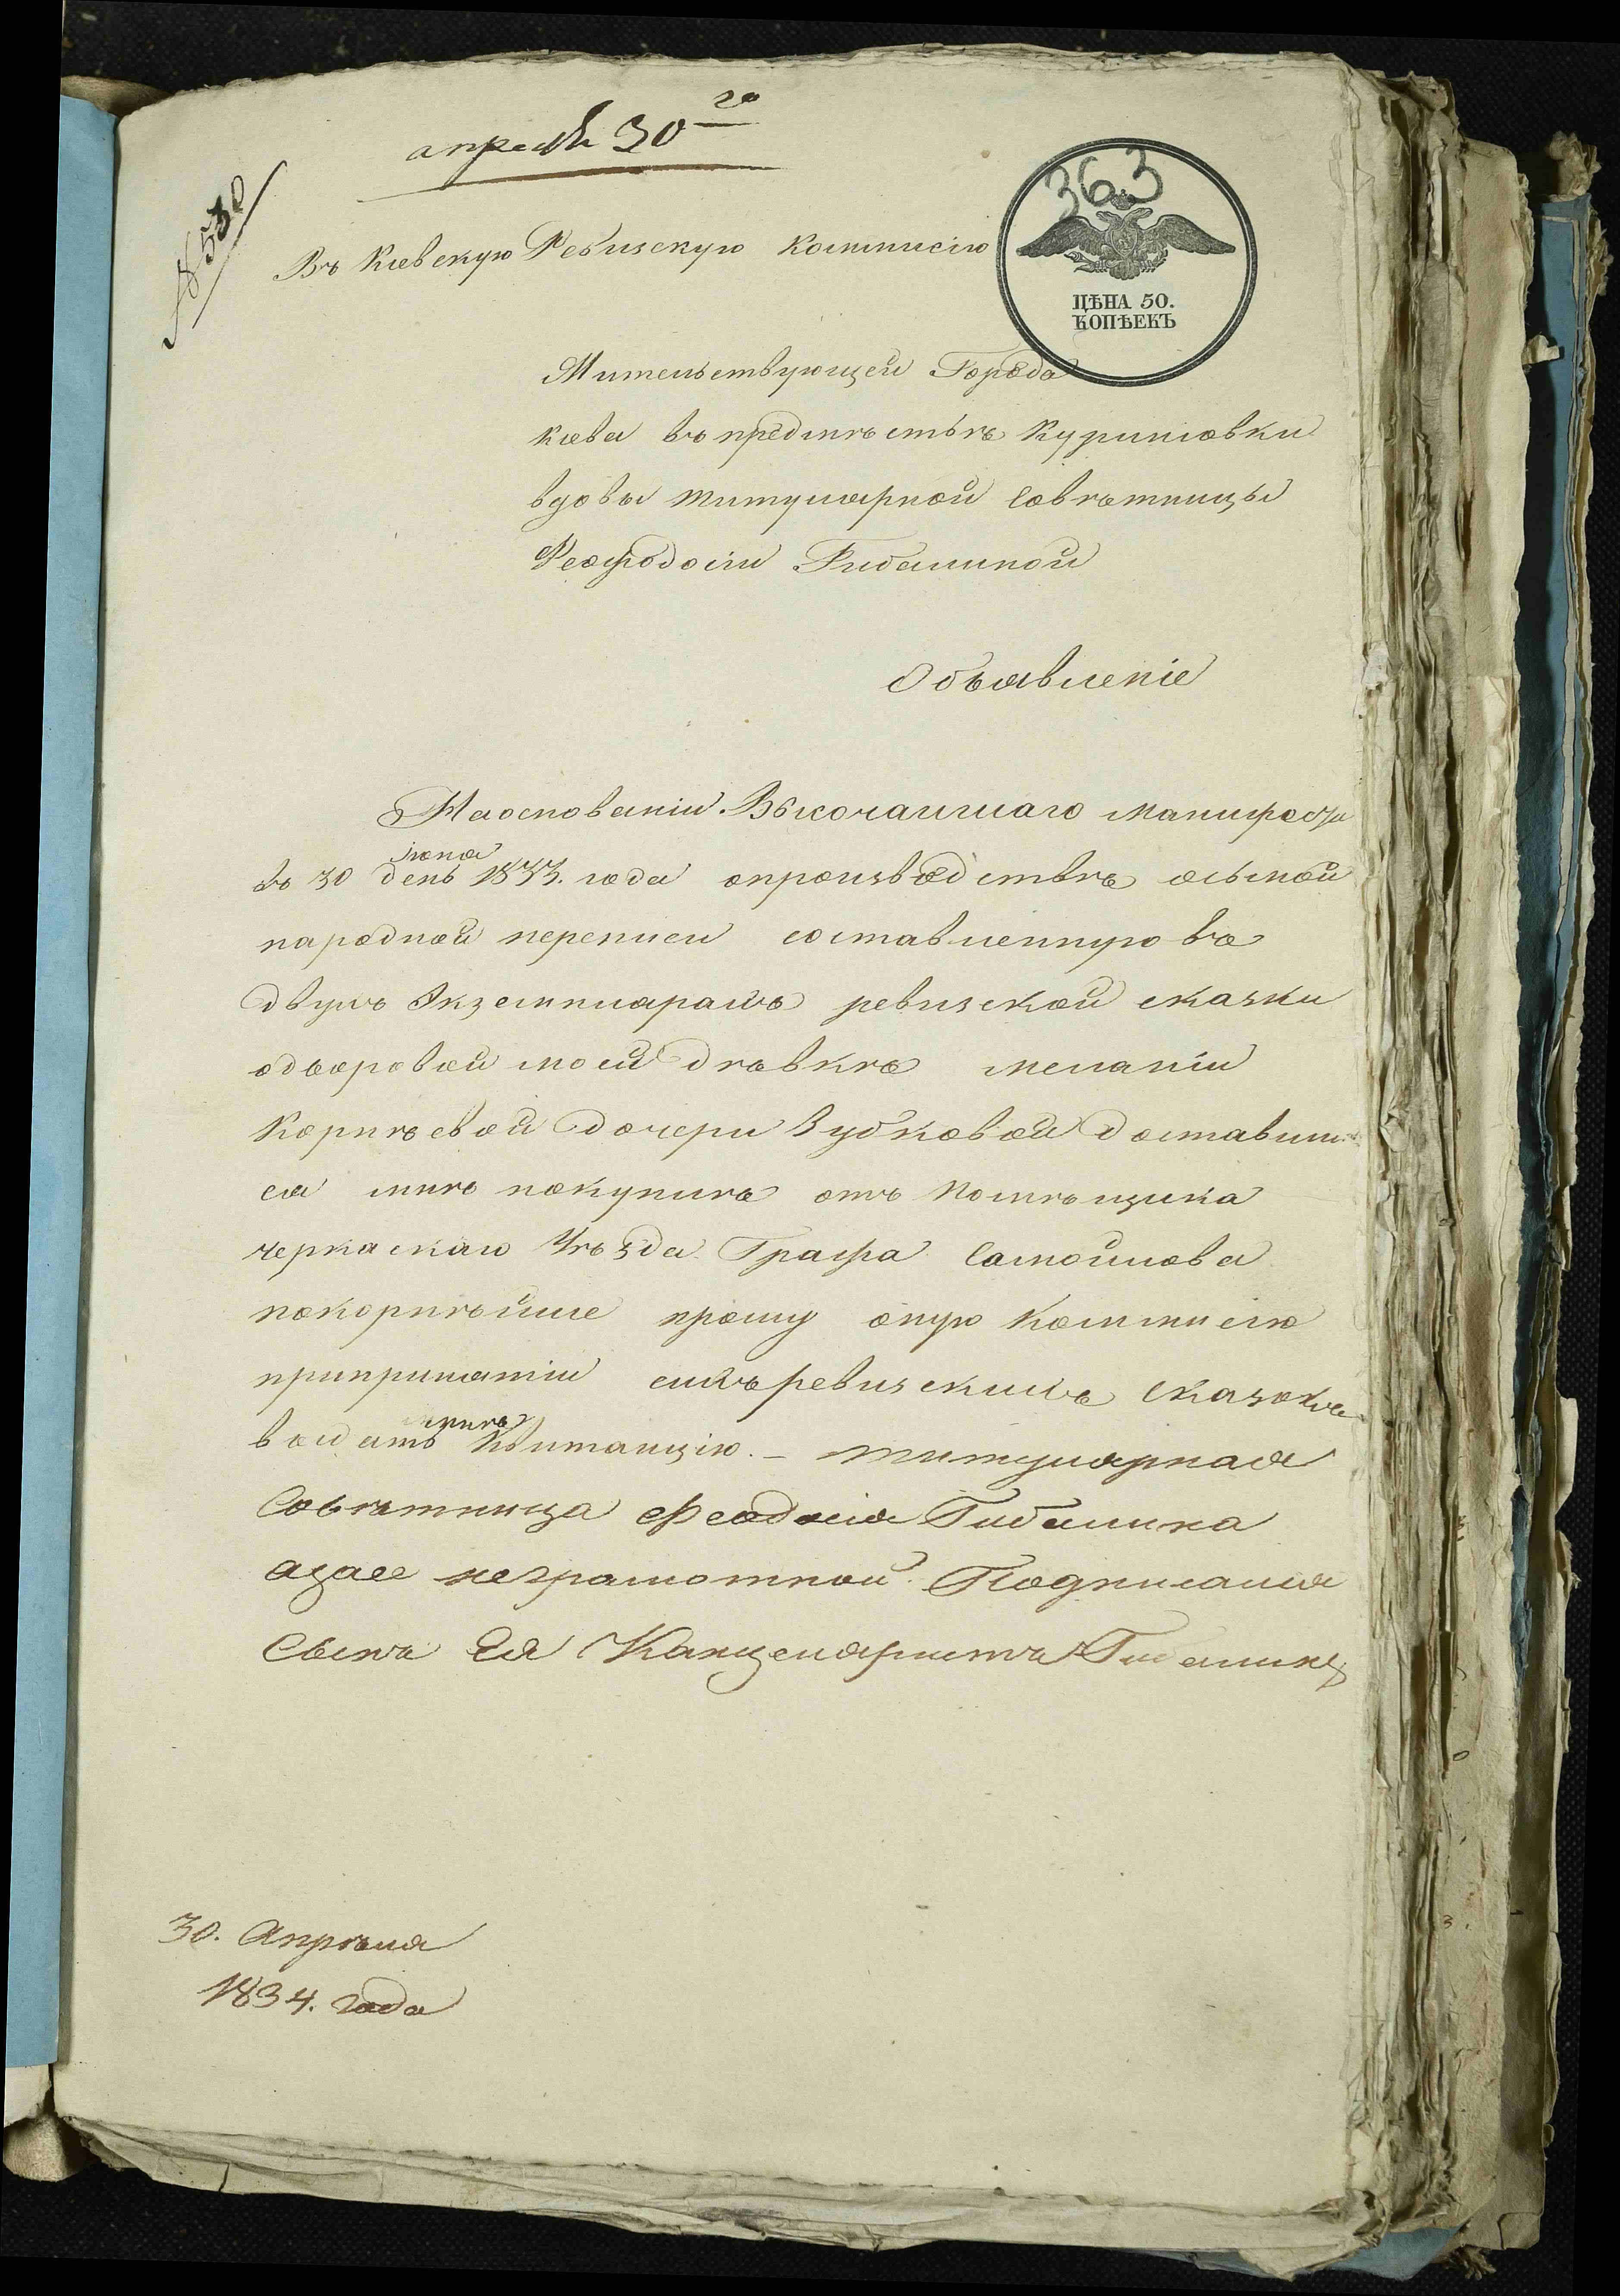 апреля 30го
№ 530
363
Въ Киевскую Ревизскую Коммисію
ЦѢНА 50.
КОПѢЕКЪ
Жительствующей Города
Киева въ предмѣстьѣ Куриновки
вдовы титулярной Совѣтницы
Феофодосіи Гибалиной
Объявленіе
На основаніи Высочаишаго Манифеста
іюня
въ 30 день 1833. года опроизводствѣ осьмой
народной переписи составленную въ
двухъ Экземплярахъ ревизской сказки
одворовой моей дѣвкѣ Меланіи
Корнѣевой дочери Зубковой доставши
ся мнѣ покупкѣ отъ Помѣщика
черкаскаго Уѣзда Графа Самойлова
покорнѣйше прошу оную Коммисію
припринятіи сихъ ревизскихъ сказокъ
мнѣ
выдать Квитанцію. – титулярная
Совѣтница Феодосія Гибалина
азаее неграмотной Подписался
Сынъ Ея Канцеляристъ
30. Апрѣля
1834. года